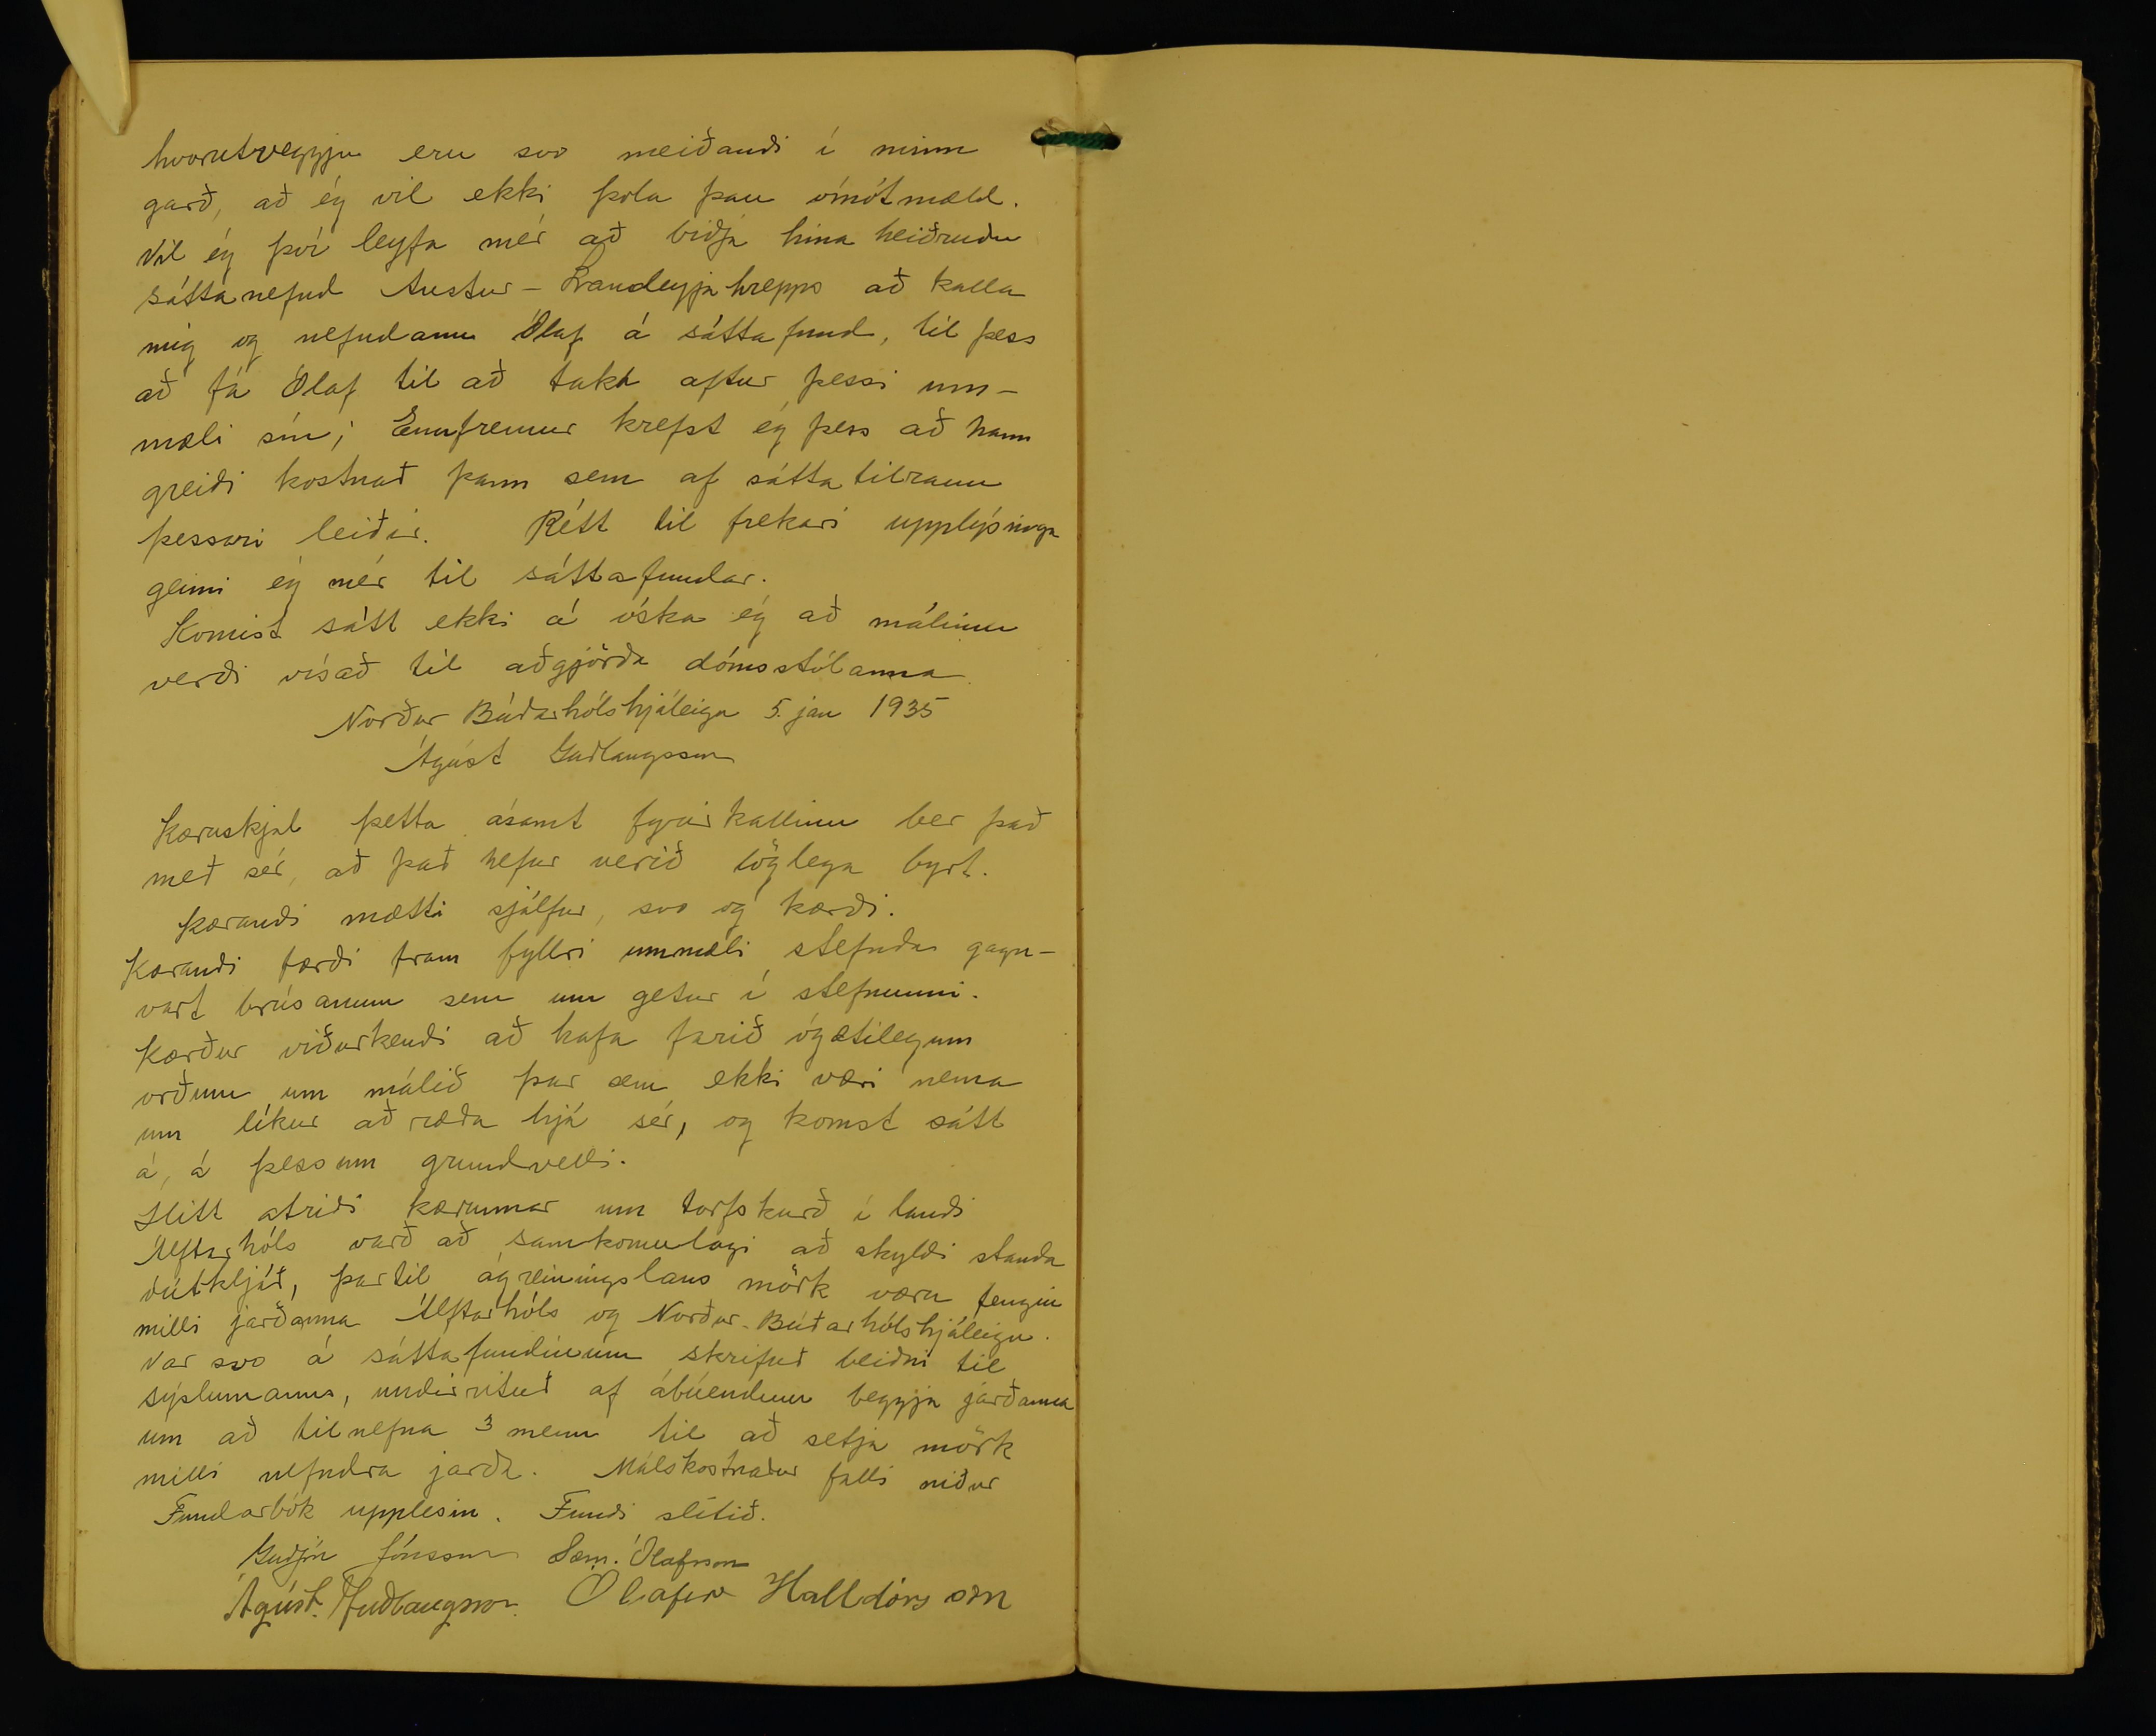 hvorutveggju eru svo meiðandi í minn
garð, að ég vil ekki þola þau ómótmæld.
Vil ég því leyfa mér að biðja hina heiðruðu
sáttanefnd Austur-Landeyjahrepps að kalla
mig og nefndann Ólaf á sáttafund, til þess
að fá Ólaf til að taka aftur þessi um-
mæli sín; Ennfremur krefst ég þess að hann
greiði kostnað þann sem af sáttatilraun
þessari leiðir. Rétt til frekari upplýsinga
geimi ég mér til sáttafundar.
Komist sátt ekki á óska ég að málinu
verði vísað til aðgjörða dómsstólanna.
Norður Búðarhólshjáleigu 5. jan 1935
Ágúst Guðlaugsson
Kæruskjal þetta ásamt fyrirkallinu ber það
með sér, að það hefur verið löglega byrt.
Kærandi mætti sjálfur, svo og kærði.
Kærandi færði fram fyllri ummæli stefnda gagn-
vart brúsanum sem um getur í stefnunni.
Kærður viðurkendi að hafa farið ógætilegum
orðum um málið þar sem ekki væri nema
um líkur að ræða hjá sér, og komst sátt
á, á þessum grundvelli.
Hitt atriði kærunnar um torfskurð í landi
Álftarhóls varð að samkomulagi að skyldi standa
óútkljáð, þartil ágreiningslaus mörk væru fengin
milli jarðanna Álftarhóls og Norður-Búðarhólshjáleigu.
Var svo á sáttafundinum skrifuð beiðni til
sýslumanns, undirrituð af ábúendum beggja jarðanna
um að tilnefna 3 menn til að setja mörk
milli nefndra jarða. Málskostnaður falli niður
Fundarbók upplesin. Fundi slitið.
Guðjón Jónsson Sæm. Ólafsson
Ágúst. Guðlaugsson. Ólafur Halldórsson